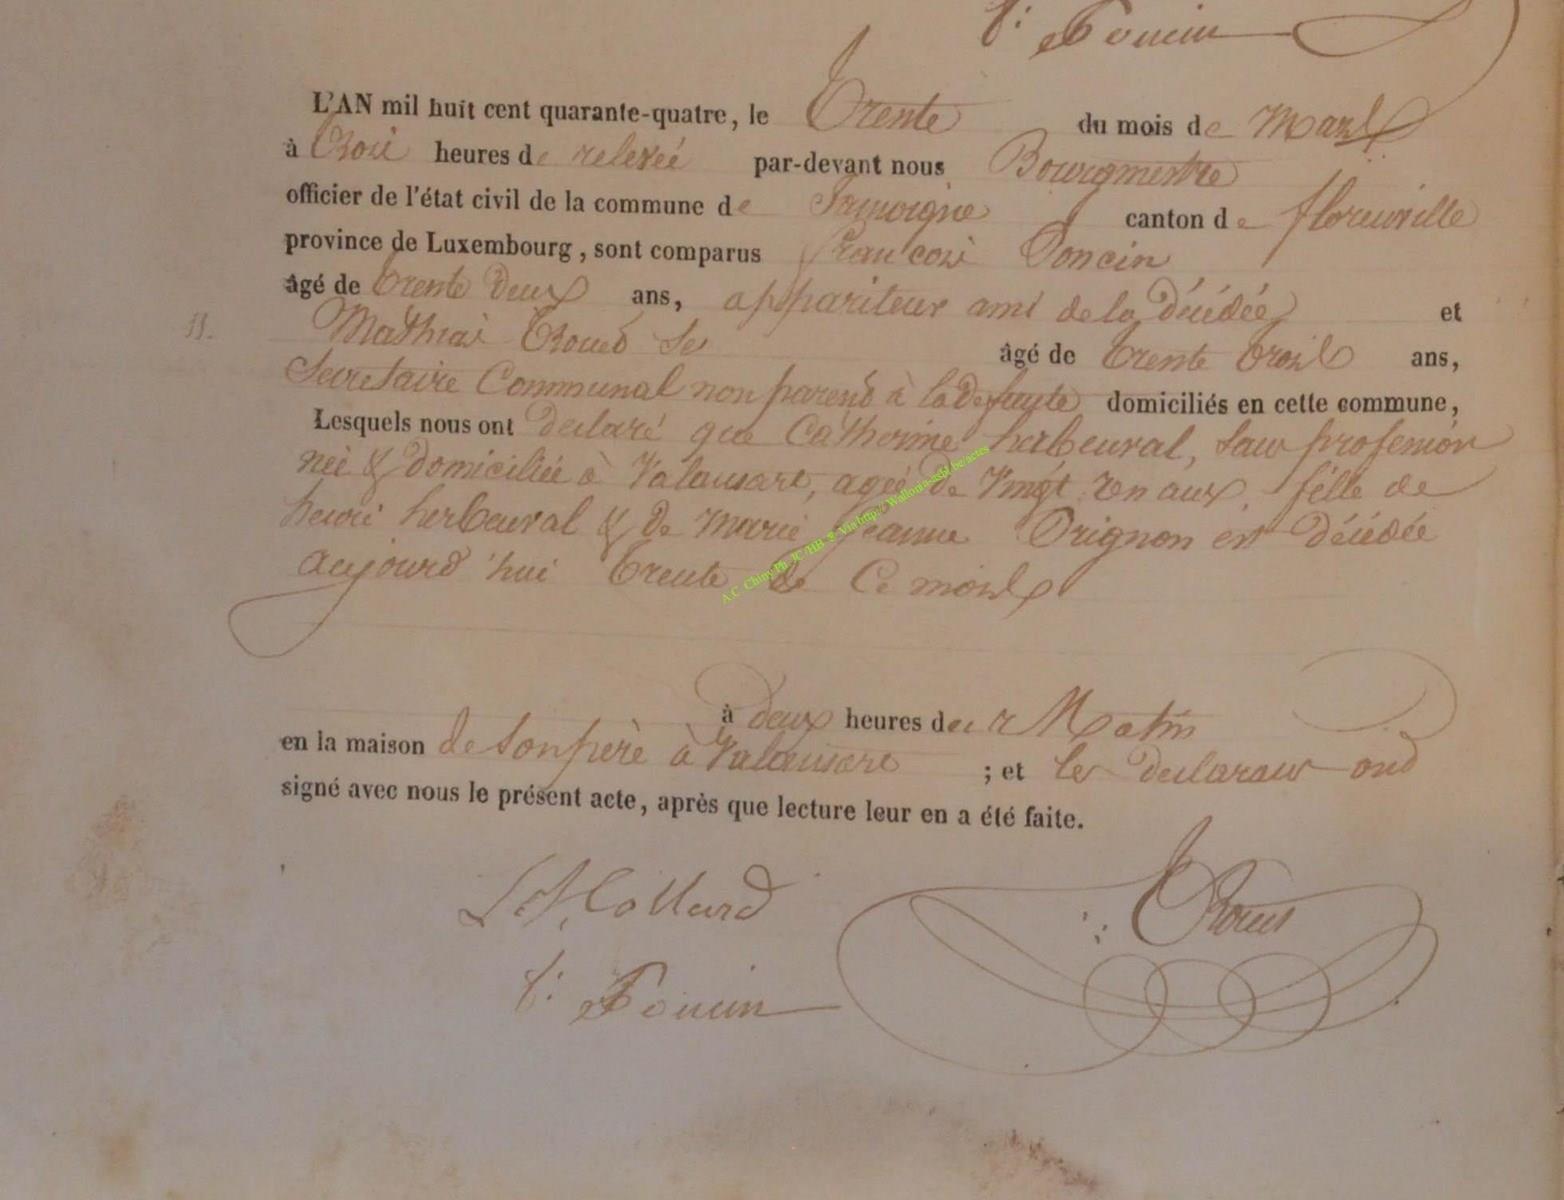 f: Poncin
L'AN mil huit cent quarante-quatre, le Trente du mois de Mars
à trois heures de relevée par-devant nous Bourgmestre
officier de l'état civil de la commune de Jamoigne canton de florenville
province de Luxembourg, sont comparus francois Poncin
âgé de trente Deux ans, appariteur ami de la Décédée et
11. Mathias
âgé de trente trois ans,
Secretaire Communal non parend à la Defunte domiciliés en cette commune,
Lesquels nous ont declaré que Catherine herbeuval, sans profession
née & domiciliée à Valansart, agée De Vingt un ans fille de
henri herbeuval & De Marie jeanne Orignon est Décédée
aujourd'hui trente de Ce mois
à Deux heures du Matin
en la maison de son père à Valansart ; et les declarans ond
signé avec nous le présent acte, après que lecture leur en a été faite.
Collard
f: Poncin
A.C Chiny Ph. JC/HB & Via http:// Wallonia-asbl.be/actes